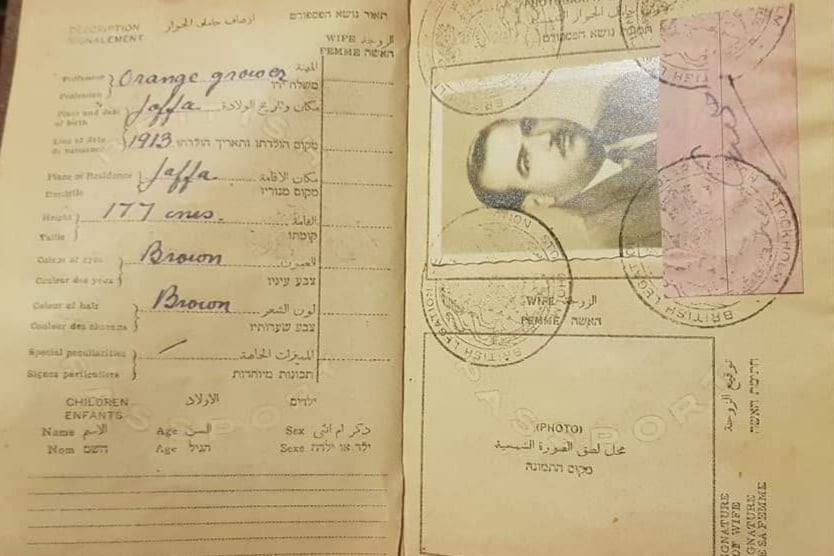 DESCRIPTION
SIGNALEMENT
اوصاف حامل الجواز
תאור נושא הפספורט
WIFE الزوجة
FEMME האשה
Profession المهنة
Profession Orange grower משלח ידו
Place and date of birth Jaffa مكان وتاريخ الولادة
Lieu et date de naissance 1913 מקום הולדתו ותאריך הולדתו
Place of Residence Jaffa مكان الاقامة
Domicile מקום מגוריו
Height 177 cms. القامة
Taille קומתו
Colour of eyes Brown العيون
Couleur des yeux צבע עיניו
Colour of hair Brown لون الشعر
Couleur des cheveux צבע שערותיו
Special peculiarities المميزات الخاصة
Signes particuliers תכונות מיוחדות
CHILDREN الاولاد ילדים
ENFANTS
Name الاسم Age السن Sex ذكر ام انثى
Nom השם Age הגיל Sexe ילד או ילדה
PASSPORT
BRITISH LEGATION
STOCKHOLM
WIFE الزوجة
FEMME האשה
PASSPORT
(PHOTO)
محل لصق الصورة الشمسية
מקום התמונה
توقيع الزوجة
חתימת האשה
SIGNATURE OF WIFE
SIGNATURE DE SA FEMME